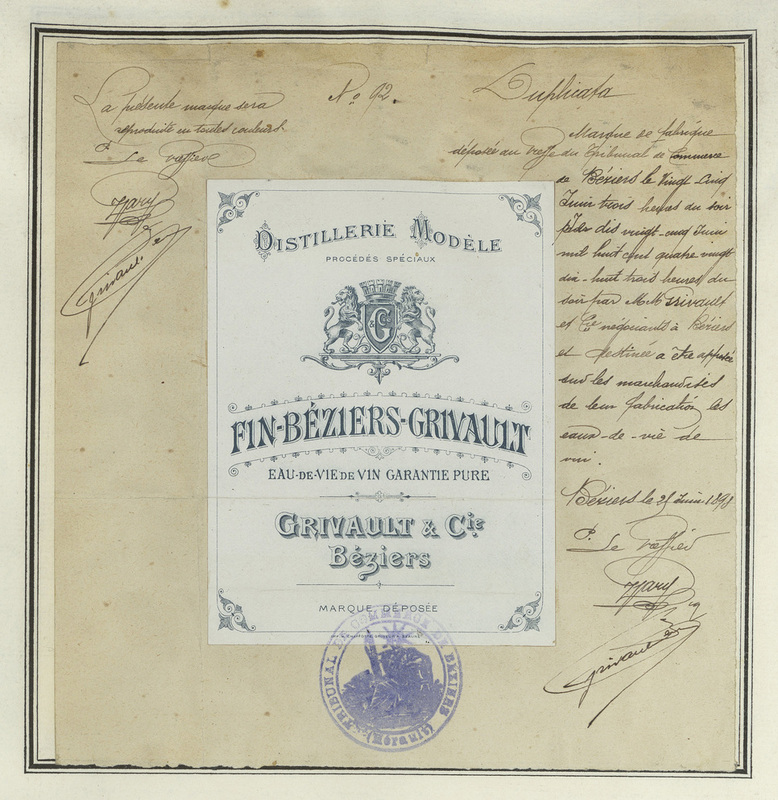 La présente marque sera
reproduite en toutes couleurs.
P. Le Greffier
No 92.
Duplicata
Marque de fabrique
déposée au Greffe du Tribunal de Commerce
de Béziers le Vingt Cinq
Juin trois heures du soir
vingt-cinq Juin
mil huit cent quatre vingt
dix-huit trois heures du
soir par M.M. Grivault
et Cie négociants à Béziers
et destinée à être apposée
sur les marchandises
de leur fabrication les
eaux-de-vie de
vin.
Béziers le 25 Juin 1898
P. Le Greffier
Grivault
DISTILLERIE MODÈLE
PROCÉDÉS SPÉCIAUX
G & Cie
FIN-BÉZIERS-GRIVAULT
EAU-DE-VIE DE VIN GARANTIE PURE
GRIVAULT & Cie
Béziers
MARQUE DÉPOSÉE
TRIBUNAL DE COMMERCE DE BÉZIERS
(Hérault)